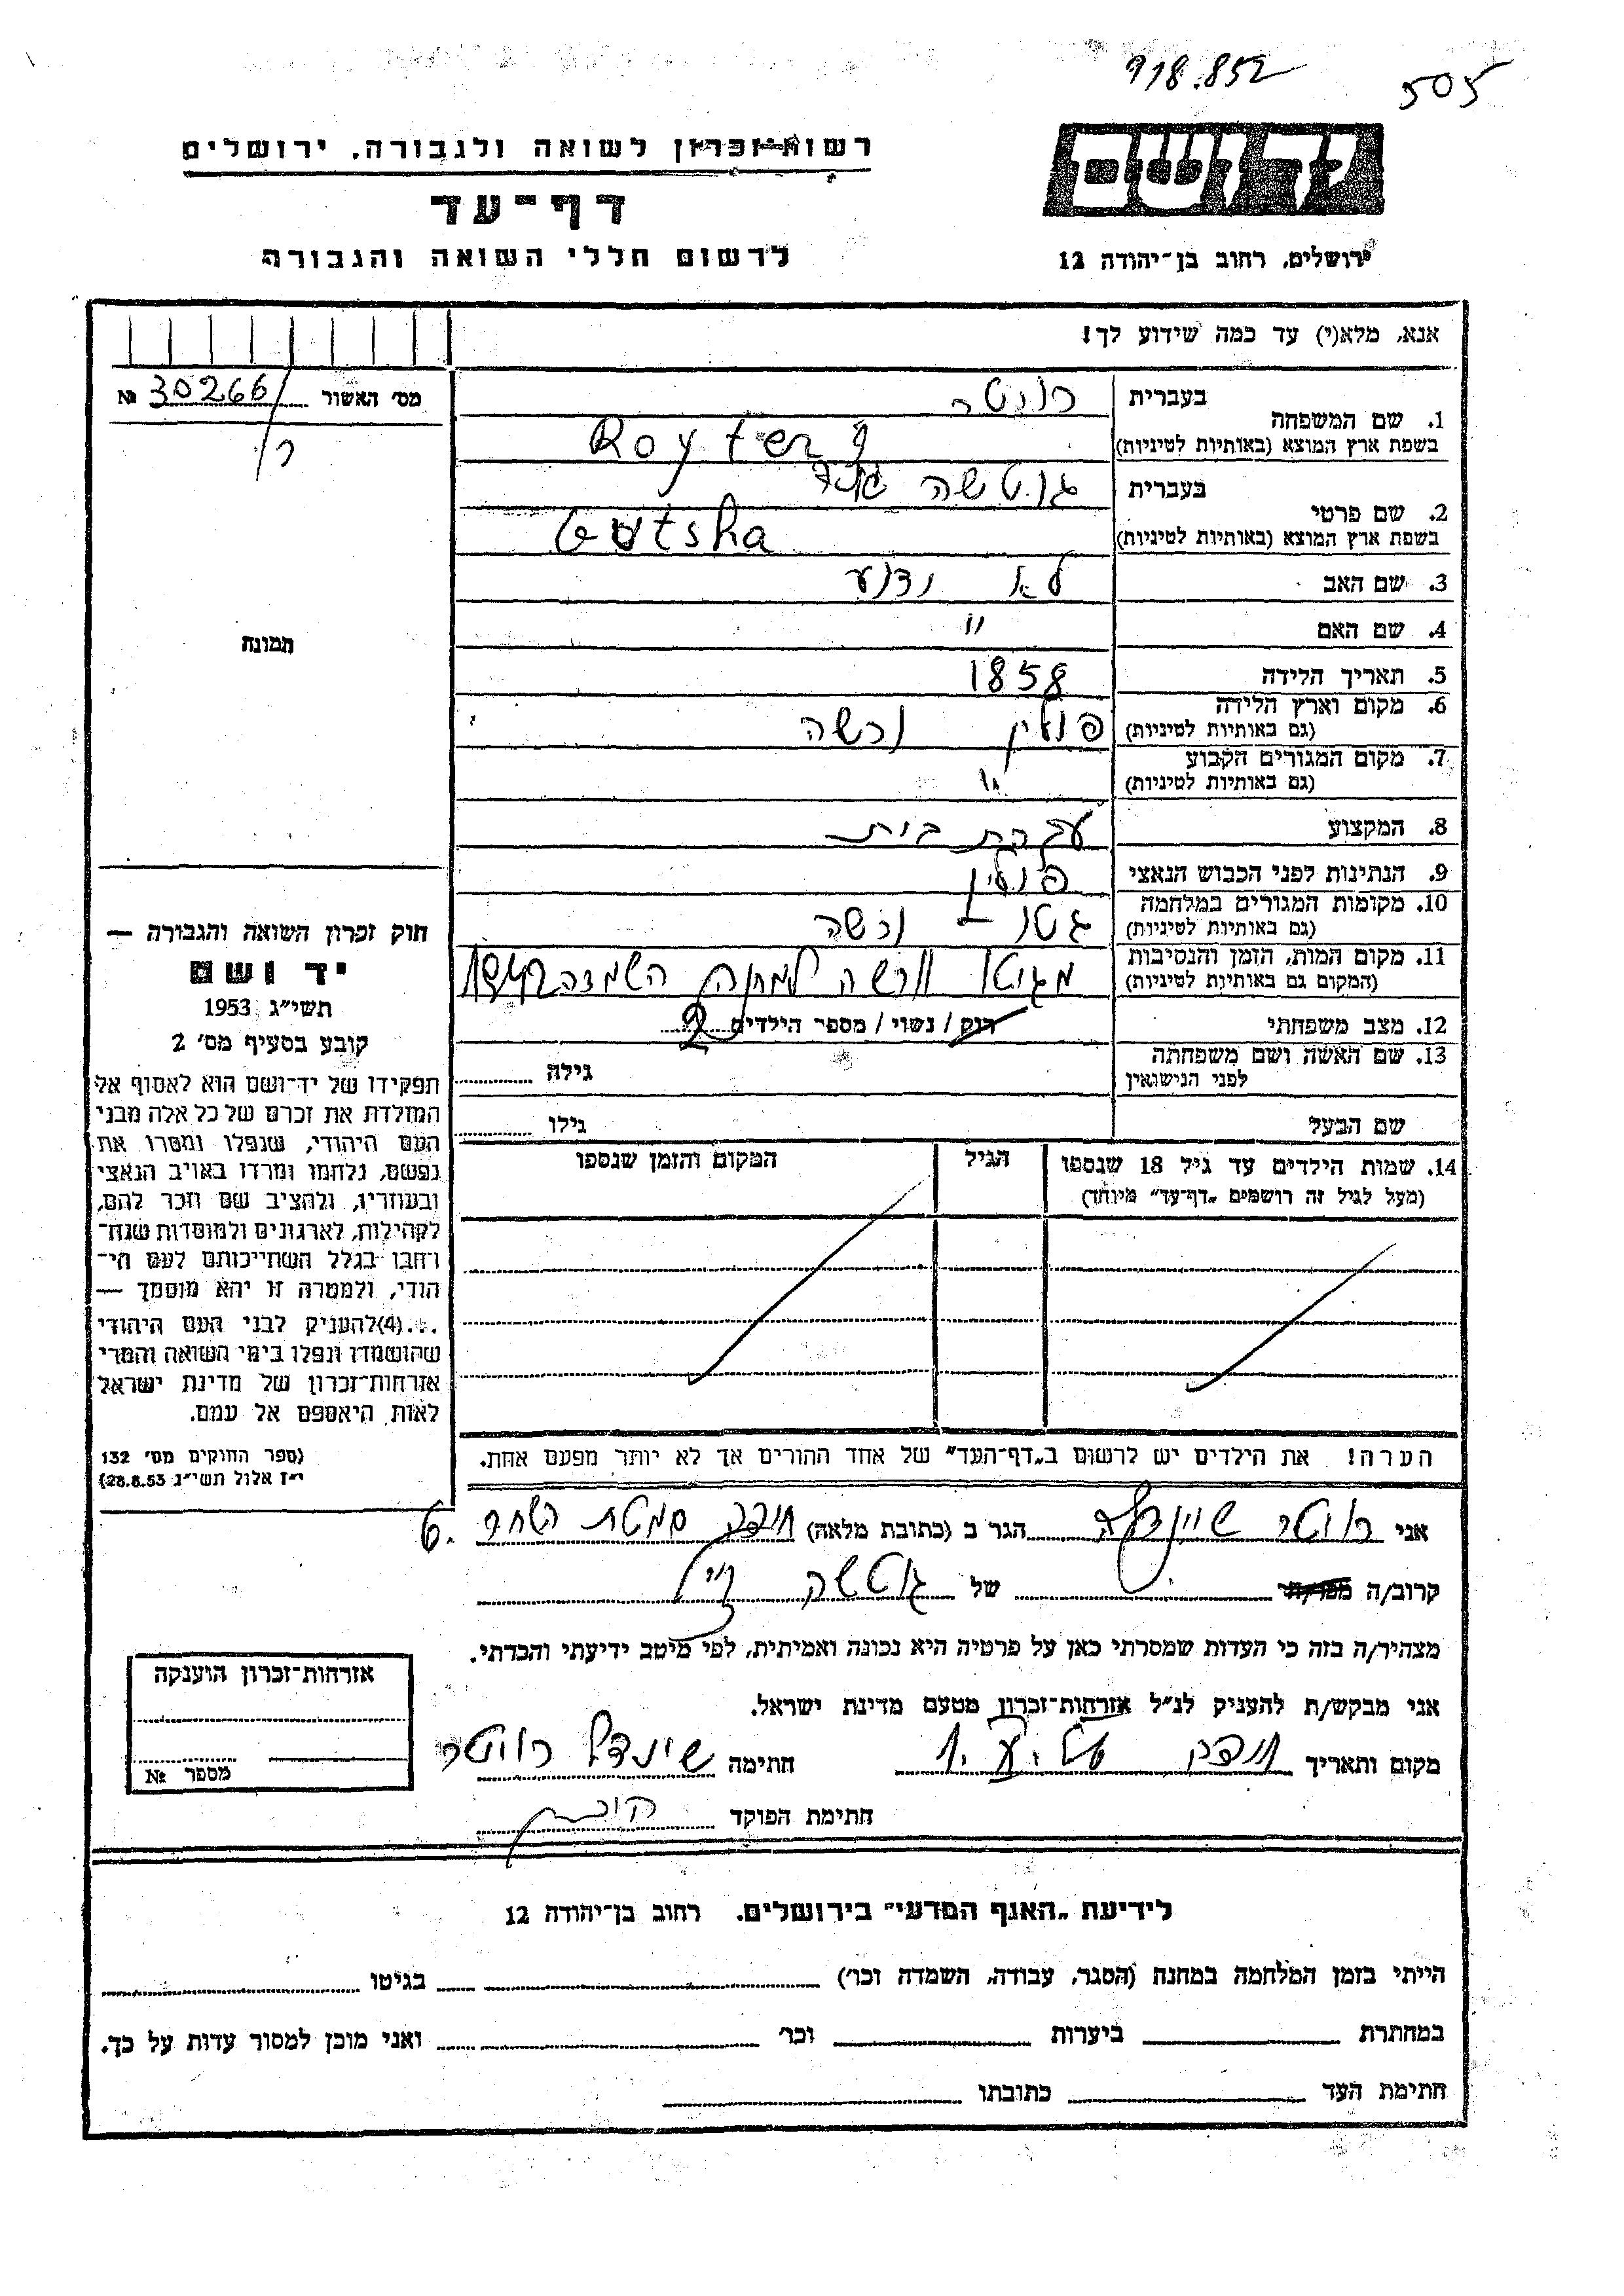 918.852
505
רשות-זכרון לשואה ולגבורה, ירושלים
דף-עד
לרשום חללי השואה והגבורה
ידושם
ירושלים, רחוב בן-יהודה 12
אנא, מלא(י) עד כמה שידוע לך!
מס' האשור 30266 №
תמונה
1. שם המשפחה
בעברית רויטר
בשפת ארץ המוצא (באותיות לטיניות) Royter
2. שם פרטי
בעברית גוטשה
בשפת ארץ המוצא (באותיות לטיניות) Gutsha
3. שם האב לא ידוע
4. שם האם "
5. תאריך הלידה 1858
6. מקום וארץ הלידה פולין ורשה
(גם באותיות לטיניות)
7. מקום המגורים הקבוע "
(גם באותיות לטיניות)
8. המקצוע עקרת בית
9. הנתינות לפני הכבוש הנאצי פולין
10. מקומות המגורים במלחמה גטו - ורשה
(גם באותיות לטיניות)
11. מקום המות, הזמן והנסיבות מגיטו וורשה למחנה השמדה
(המקום גם באותיות לטיניות)
12. מצב משפחתי רוק / נשוי / מספר הילדים 2
13. שם האשה ושם משפחתה גילה
לפני הנישואין
שם הבעל גילו
14. שמות הילדים עד גיל 18 שנספו הגיל המקום והזמן שנספו
(מעל לגיל זה רושמים "דף-עד" מיוחד)
הערה! את הילדים יש לרשום ב"דף-העד" של אחד ההורים אך לא יותר מפעם אחת.
חוק זכרון השואה והגבורה —
יד ושם
תשי"ג 1953
קובע בסעיף מס' 2
תפקידו של יד-ושם הוא לאסוף אל
המולדת את זכרם של כל אלה מבני
העם היהודי, שנפלו ומסרו את
נפשם, נלחמו ומרדו באויב הנאצי
ובעוזריו, ולהציב שם וזכר להם,
לקהילות, לארגונים ולמוסדות שנח-
רבו בגלל השתייכותם לעם הי-
הודי, ולמטרה זו יהא מוסמך —
...(4)להעניק לבני העם היהודי
שהושמדו ונפלו בימי השואה והמרי
אזרחות-זכרון של מדינת ישראל
לאות היאספם אל עמם.
(ספר החוקים מס' 132
י"ז אלול תשי"ג 28.8.53)
אני רויטר שיינדלה הגר ב (כתובת מלאה) חיפה סמטת השחר 6.
קרוב/ה של גוטשה
מצהיר/ה בזה כי העדות שמסרתי כאן על פרטיה היא נכונה ואמיתית, לפי מיטב ידיעתי והכרתי.
אני מבקש/ת להעניק לנ"ל אזרחות-זכרון מטעם מדינת ישראל.
מקום ותאריך חיפה חתימה שינדל רויטר
חתימת הפוקד
אזרחות-זכרון הוענקה
מספר №
לידיעת "האגף המדעי" בירושלים. רחוב בן-יהודה 12
הייתי בזמן המלחמה במחנה (הסגר, עבודה, השמדה וכר') בגיטו
במחתרת ביערות וכר' ואני מוכן למסור עדות על כך.
חתימת העד כתובתו